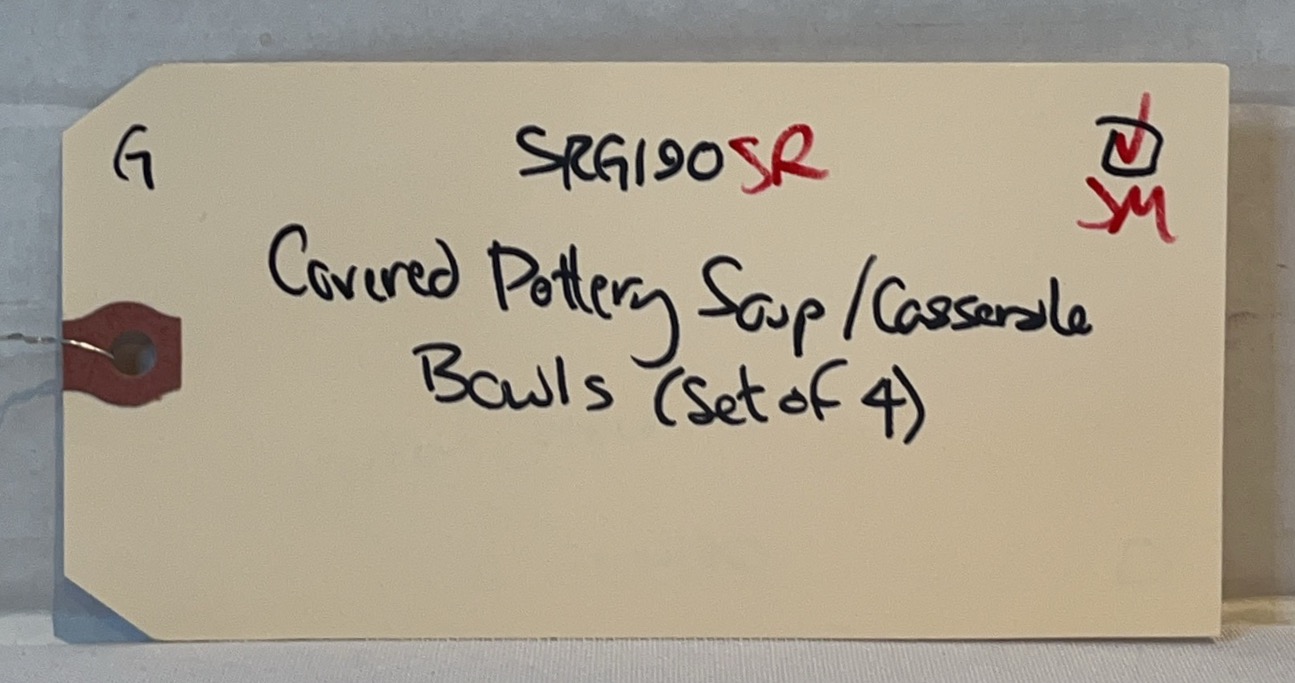 G SRG190SR ☑
SM
Covered Pottery Soup/Casserole
Bowls (Set of 4)